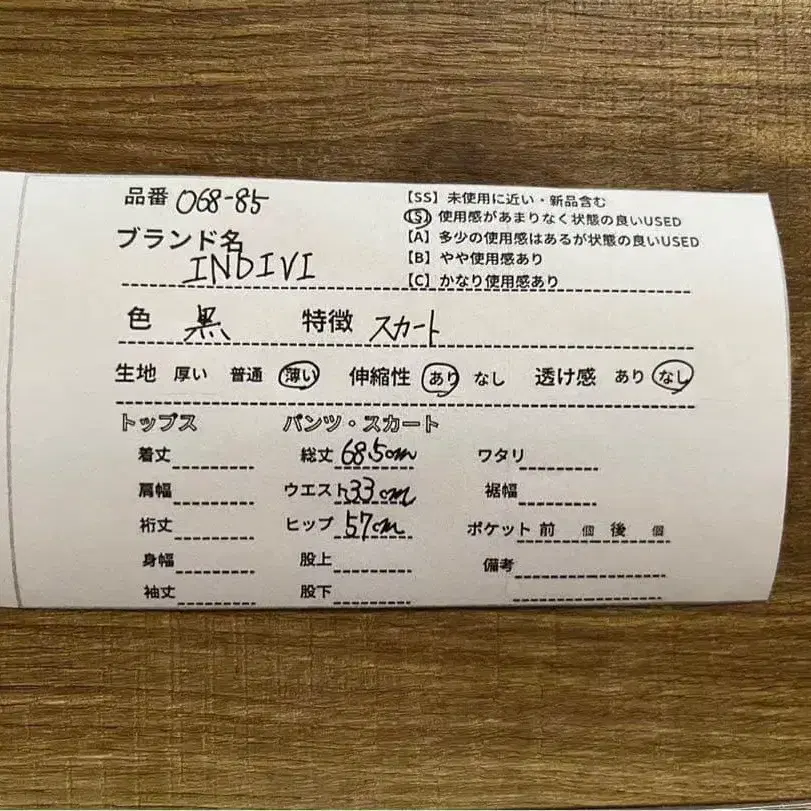 品番 068-85
【SS】未使用に近い・新品含む
【S】使用感があまりなく状態の良いUSED
【A】多少の使用感はあるが状態の良いUSED
【B】やや使用感あり
【C】かなり使用感あり
ブランド名
INDIVI
色 黒 特徴 スカート
生地 厚い 普通 薄い 伸縮性 あり なし 透け感 あり なし
トップス パンツ・スカート
着丈 総丈 68.5cm ワタリ
肩幅 ウエスト 33cm 裾幅
裄丈 ヒップ 57cm ポケット 前 個 後 個
身幅 股上 備考
袖丈 股下